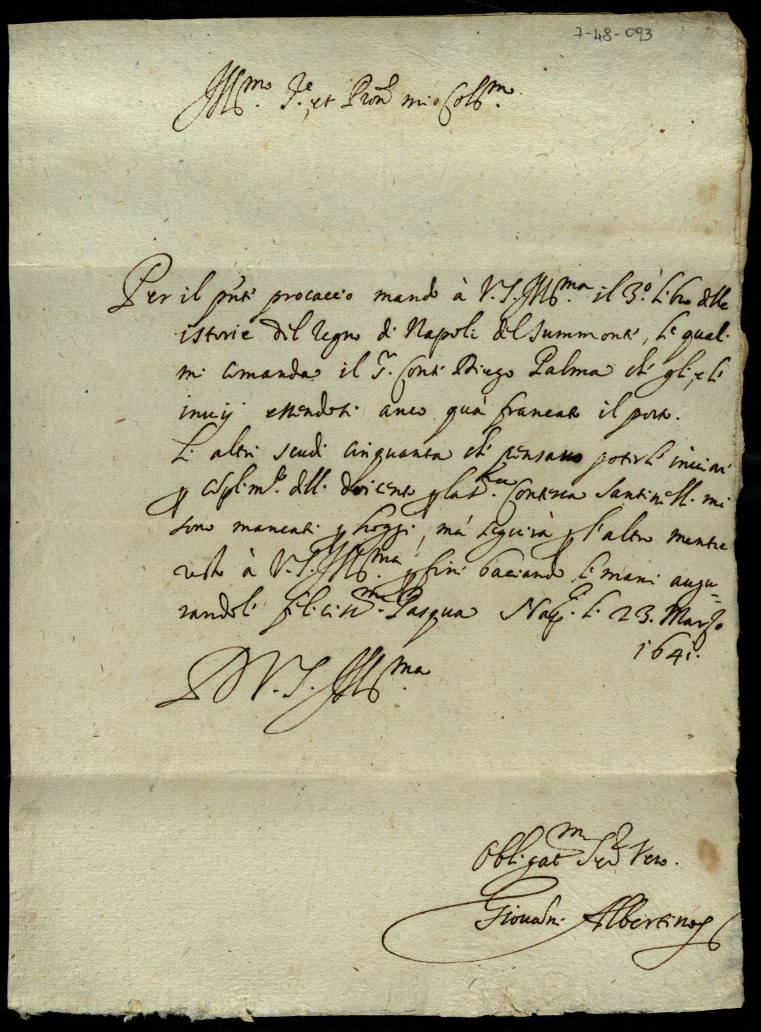 7-48-093
Ill.mo S.re et Pron. mio Coll.mo
Per il pnte procaccio mando à V.S. Ill.ma il 3.o libro delle
istorie del Regno di Napoli del Summonte, le quali
mi comanda il S.r Conte Diego Palma che gli
invij essendosi anco quà francato il porto.
Li altri scudi cinquanta che pensavo poterli inviare
p delli docento Contessa Santinelli mi
sono mancati p hoggi, mà seguirà p l'altro mentre
resto à V.S. Ill.ma p fine baciando le mani augu=
randole feliciss.ma Pasqua Nap. li 23. Marzo
1641.
D V.S. Ill.ma
Obligat.mo Ser. Vero.
Giovanni Albertino